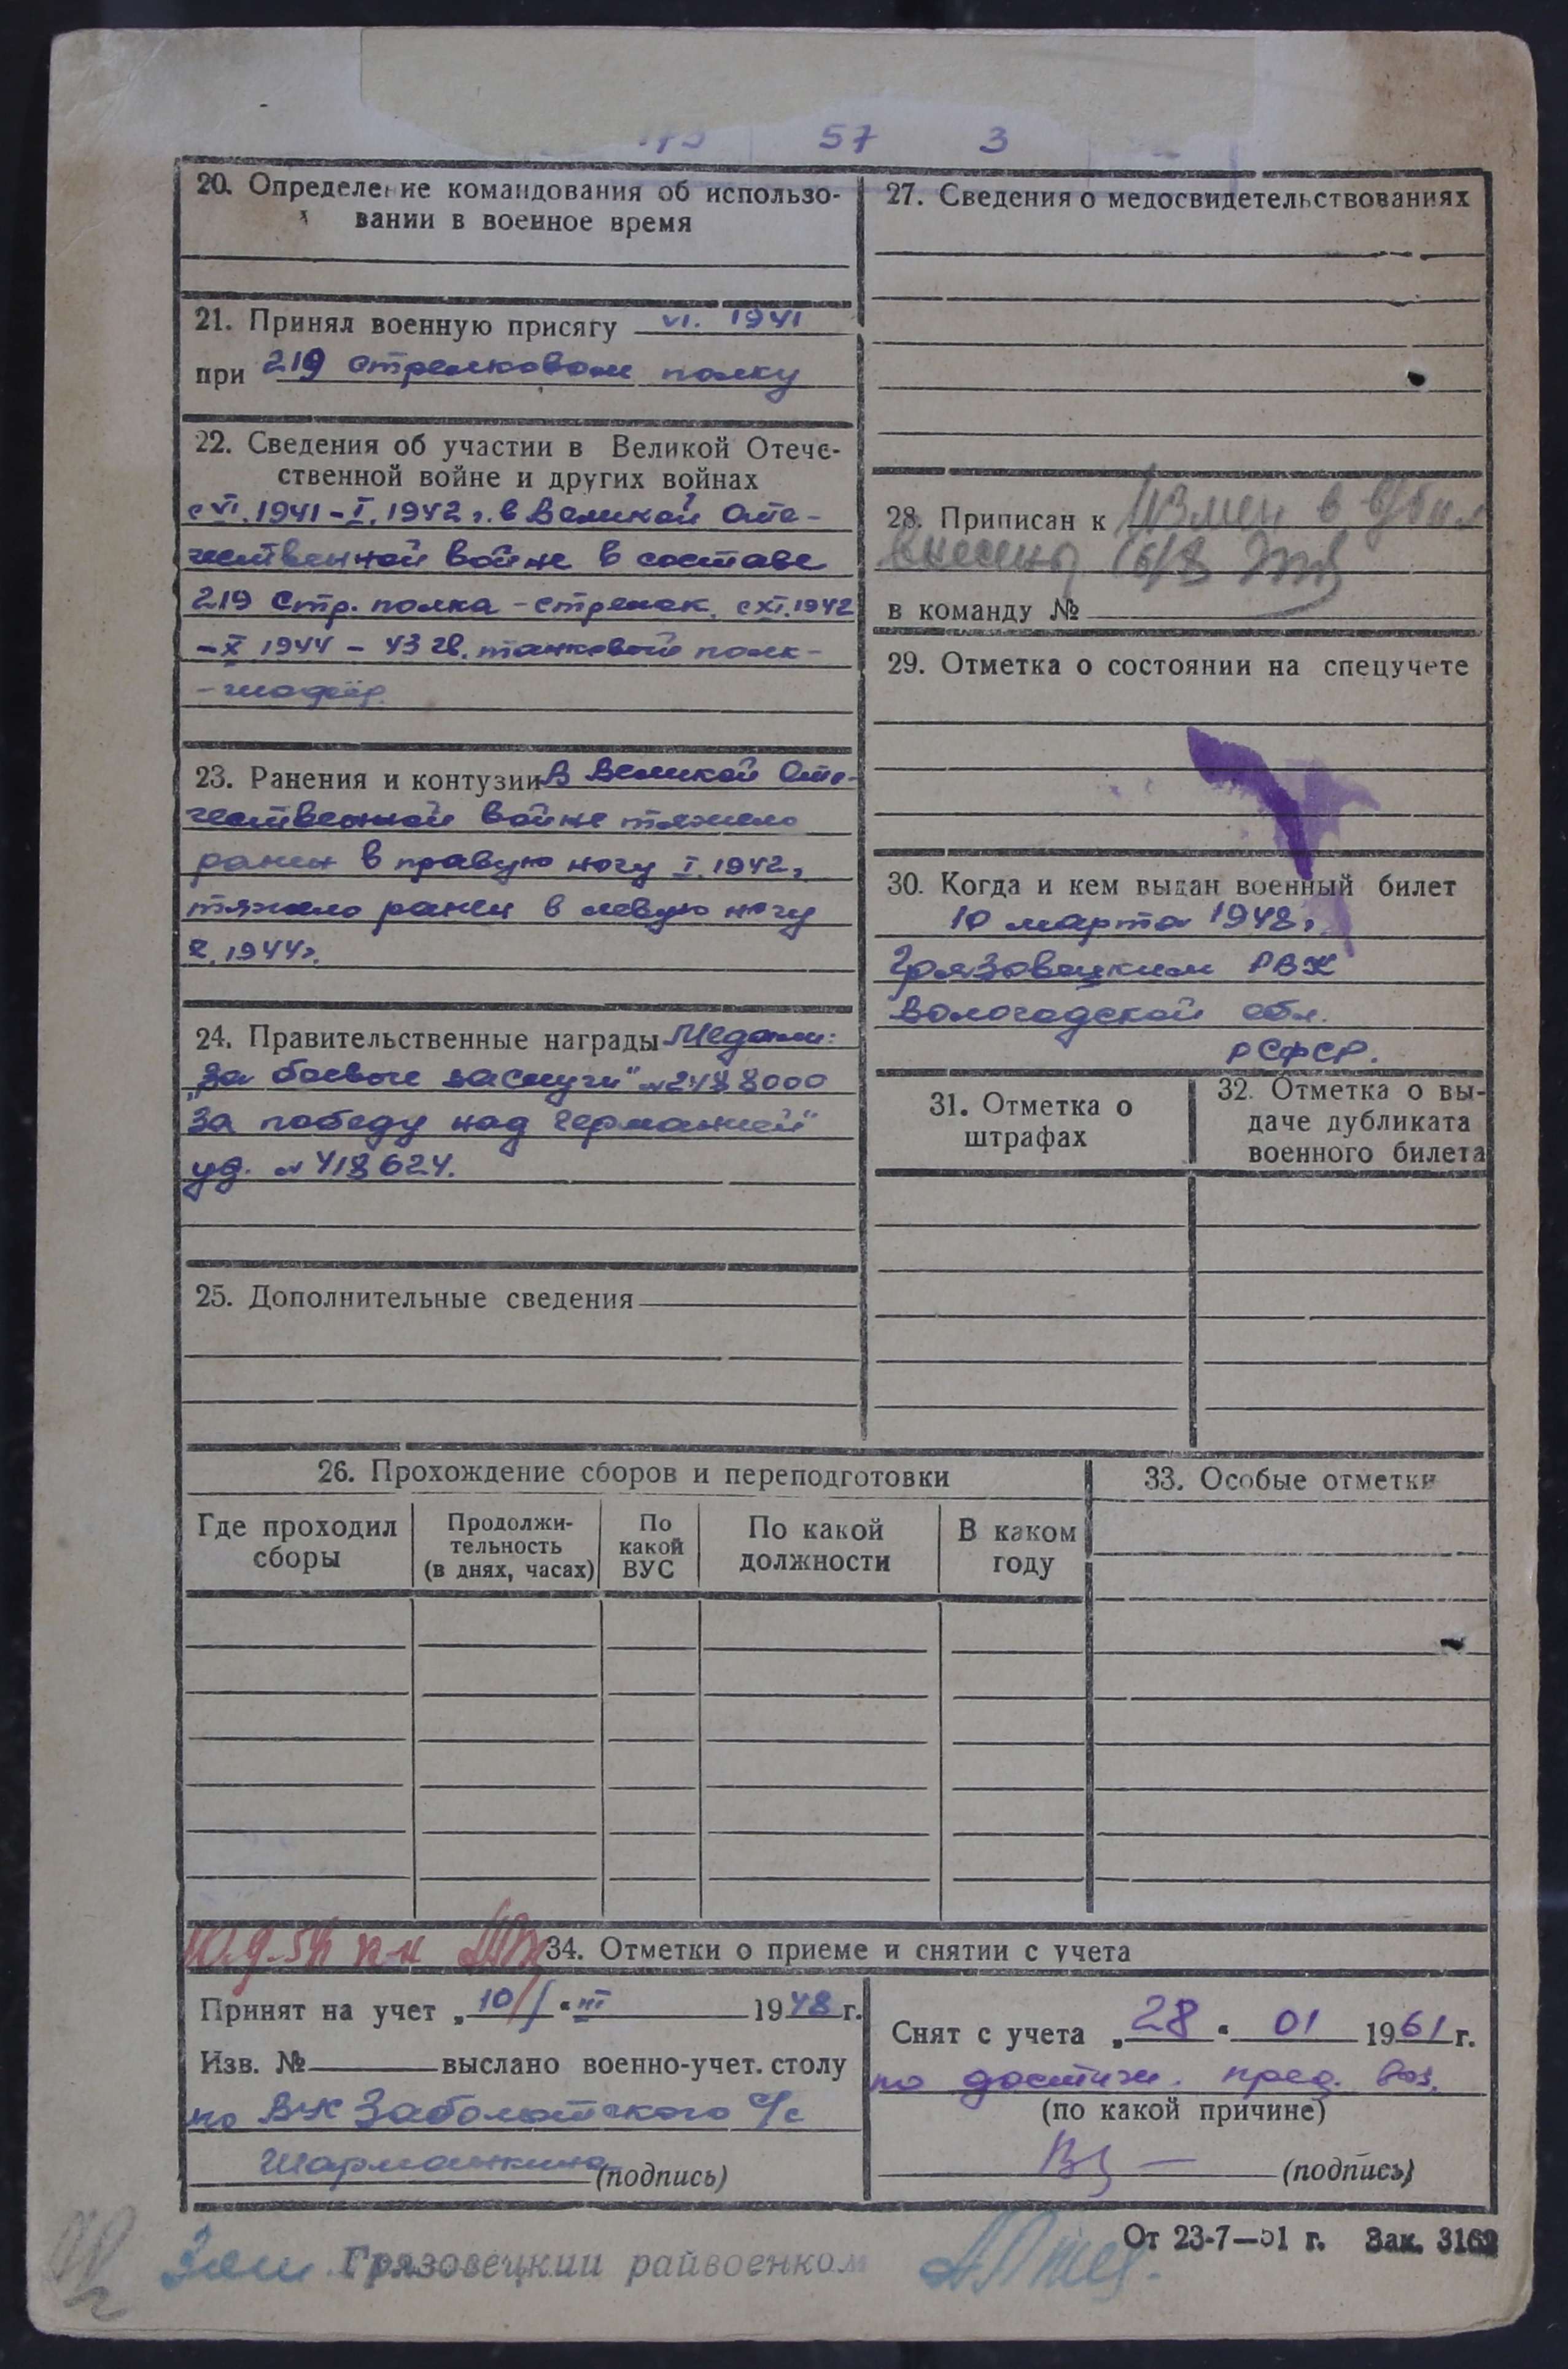 57 3
20. Определение командования об использо-
вании в военное время
21. Принял военную присягу VI. 1941
при 219 стрелковом полку
22. Сведения об участии в Великой Отече-
ственной войне и других войнах
с VI. 1941 – I. 1942 г. в Великой Оте-
чественной войне в составе
219 стр. полка – стрелок. с XI. 1942
– X 1944 – 43 гв. танковый полк –
– шофёр.
23. Ранения и контузии В Великой Оте-
чественной войне тяжело
ранен в правую ногу I. 1942,
тяжело ранен в левую ногу
X. 1944 г.
24. Правительственные награды Медали:
„За боевые заслуги" N 2488000
За победу над Германией"
уд. N 418624.
25. Дополнительные сведения
27. Сведения о медосвидетельствованиях
28. Приписан к Измен в
внесены
в команду №
29. Отметка о состоянии на спецучете
30. Когда и кем выдан военный билет
10 марта 1948 г.
Грязовецким РВК
Вологодской обл.
РСФСР.
31. Отметка о
штрафах
32. Отметка о вы-
даче дубликата
военного билета
26. Прохождение сборов и переподготовки
Где проходил
сборы
Продолжи-
тельность
(в днях, часах)
По
какой
ВУС
По какой
должности
В каком
году
33. Особые отметки
34. Отметки о приеме и снятии с учета
Принят на учет „10" III 1948 г.
Изв. № выслано военно-учет. столу
по ВУС Заболотского с/с
(подпись)
Снят с учета „28" 01 1961 г.
по достиж. пред. воз.
(по какой причине)
(подпись)
От 23-7—51 г. Зак. 3162
Зам. Грязовецкий райвоенком